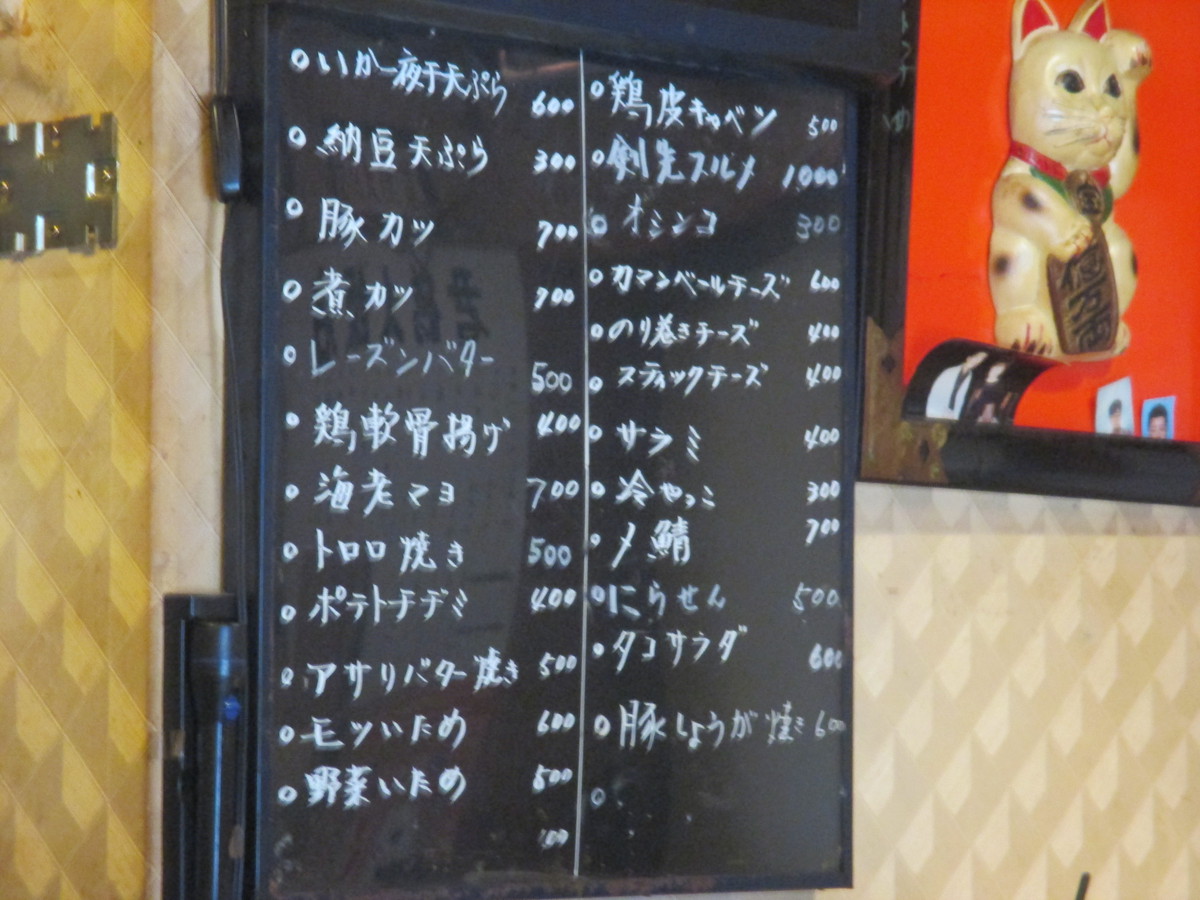 いか一夜干天ぷら 600
納豆天ぷら 300
豚カツ 700
煮カツ 700
レーズンバター 500
鶏軟骨揚げ 400
海老マヨ 700
トロロ焼き 500
ポテトチヂミ 400
アサリバター焼き 500
モツいため 600
野菜いため 500
鶏皮キャベツ 500
剣先スルメ 1000
オシンコ 300
カマンベールチーズ 600
のり巻きチーズ 400
スティックチーズ 400
サラミ 400
冷やっこ 300
〆鯖 700
にらせん 500
タコサラダ 600
豚しょうが焼き 600